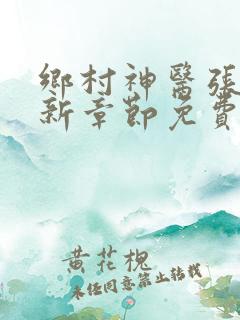 鄉村神醫張
新章節免費
黄花槐
未经同意禁止转载